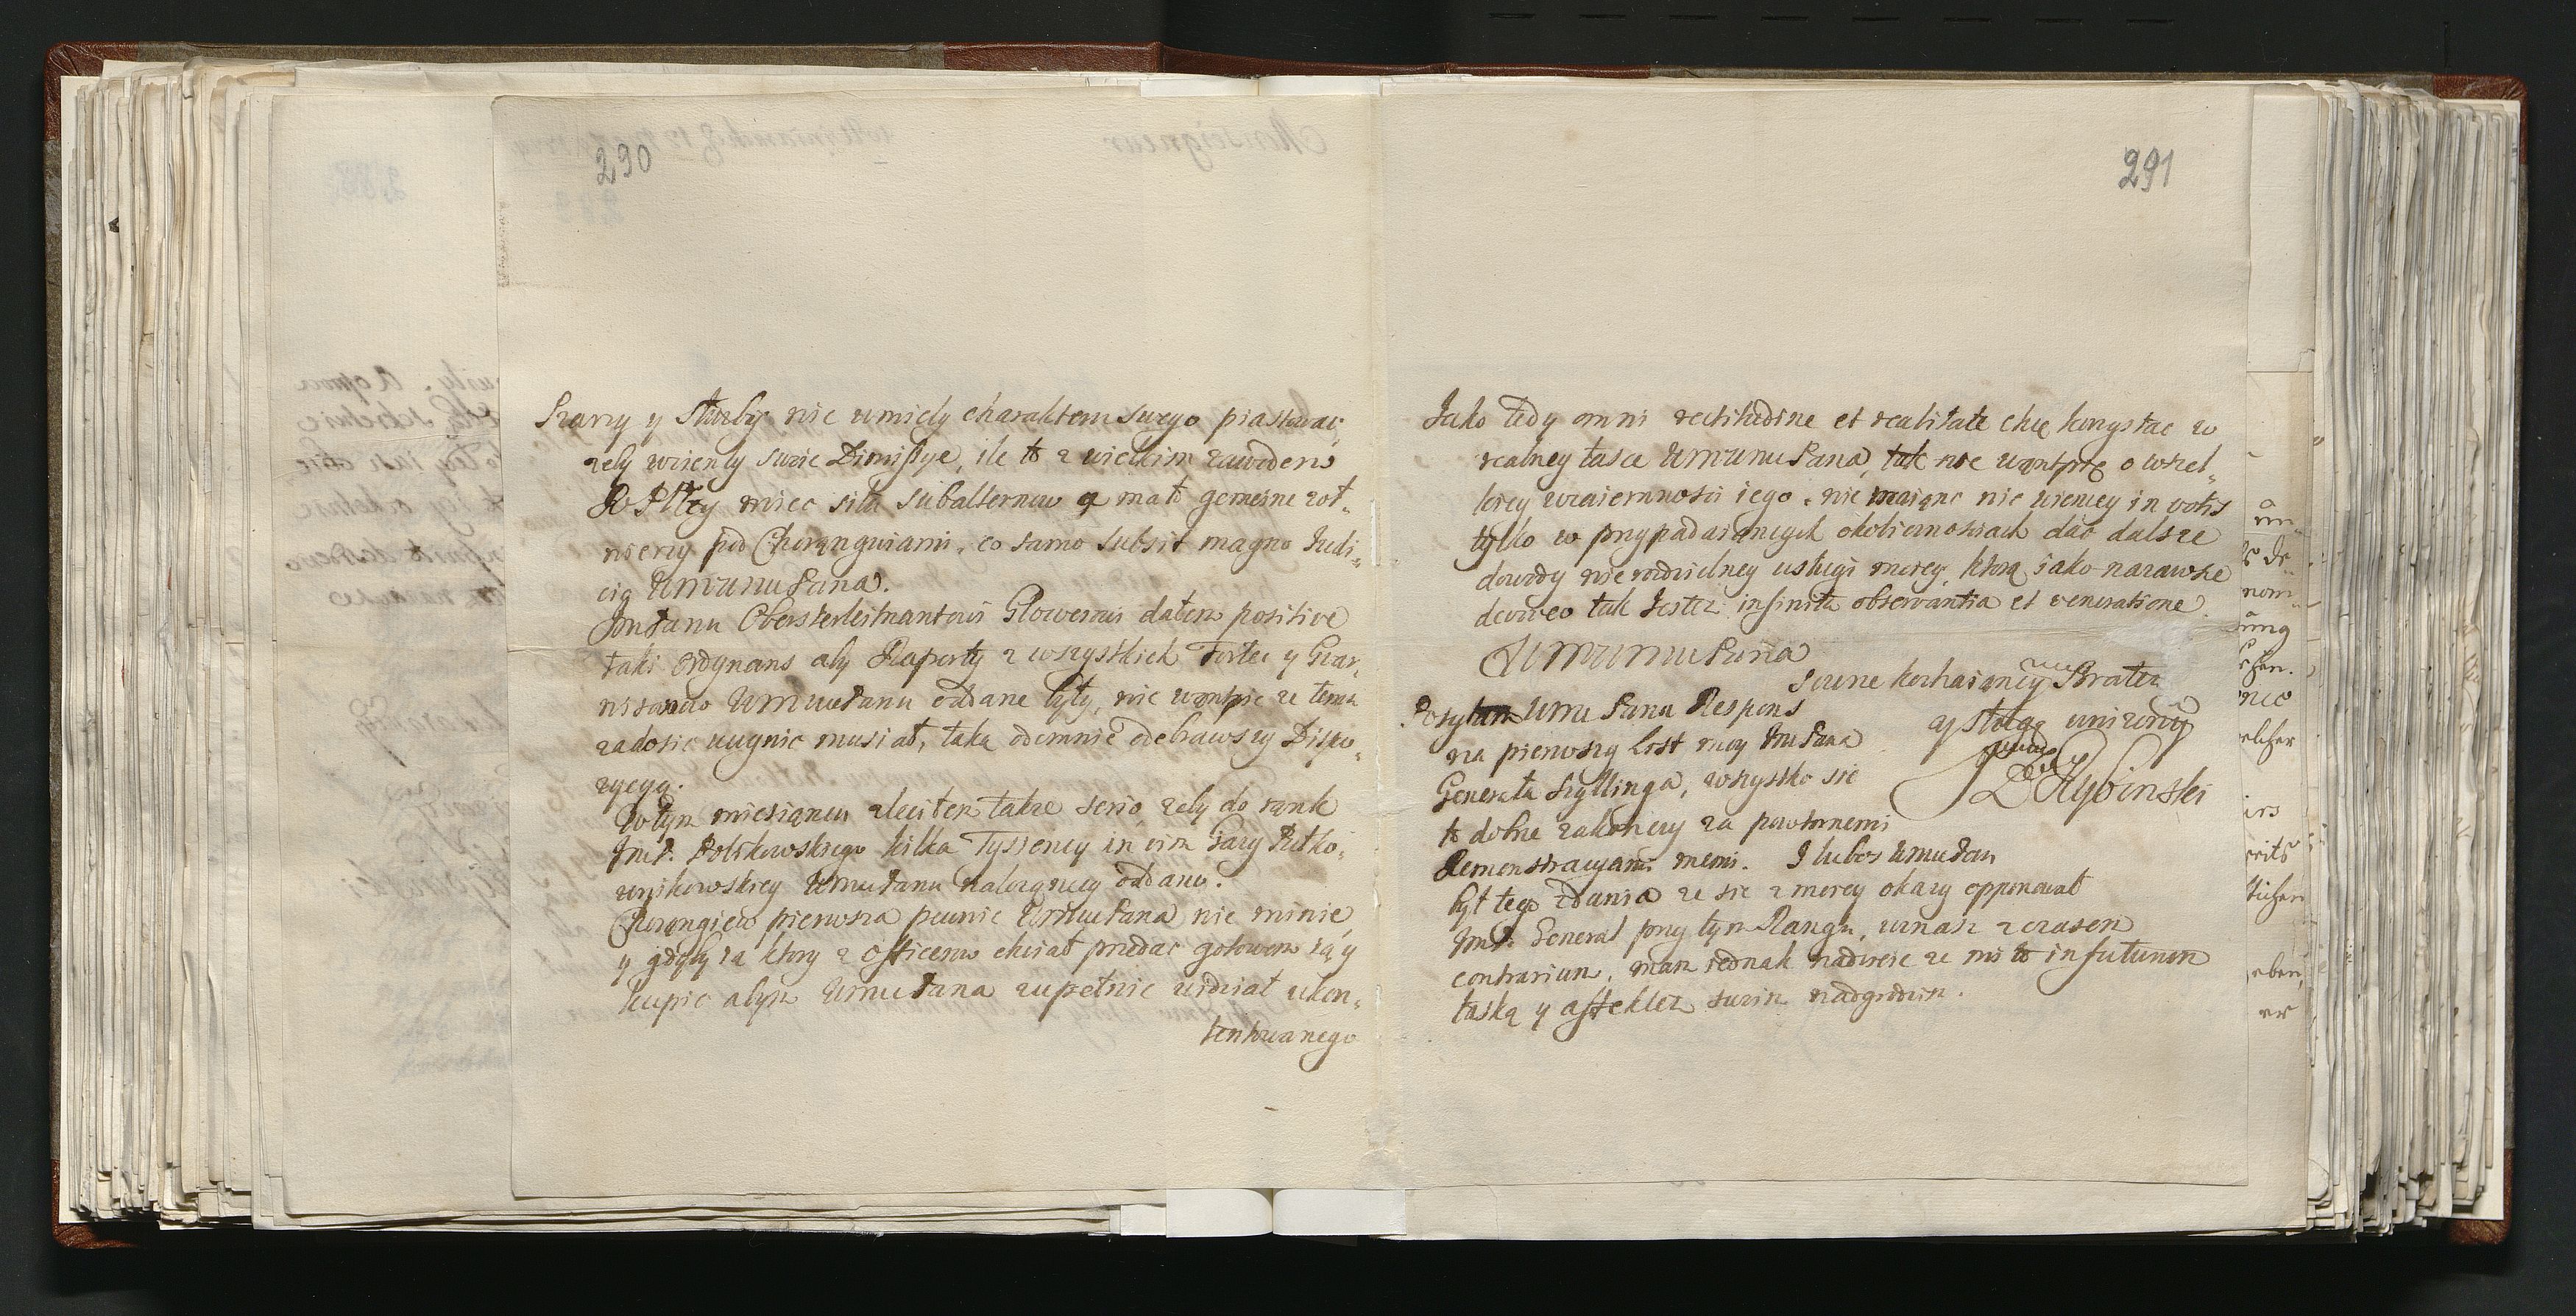 290
Szarzy y służby nie umiely charakteru swego piastować,
zeby wzieny swoie Dimissye, ile to z wielkim zawodem
R Pltey miec siła subalternow a mało gemeine zoł-
nierzy pod Chorągwiami, co samo subsit magno Iudi-
cio WmMmuPana.
JmPanu Obersterleitnantowi Glowerowi dałem positive
taki Ordynans aby Raporty z wszystkich Fortec y Guar-
nisonow WmmuPanu oddane były, nie wątpie ze temu
zadosic uczynic musiał, taką odemnie odebrawszy Dispo-
zycyą.
W tym miesiącu zleciłem takze serio, zeby do rąnk
JmP. Polikowskiego kilka Tysiency in vim Gazy
WmuPanu nalezącey oddano.
Chorągiew pierwsza pewnie WmmuPana nie minie,
y gdyby ią ktory z Officerow chciał przedac gotowem ią y
kupic abym WmmuPana zupełnie widział ukon-
tentowanego
291
Jako tedy omni rectitudine et realitate chcę korzystac w
realney łasce WmMmuPana, tak nie wątpię o wszel-
kiey wzaiemnosci iego, nie maiąnc nic wiencey in votis
tylko w przypadaiąncych okolicznosciach dac dalsze
dowody nierozdzielney usługi moiey, ktorą iako na zawsze
deoveo tak iestem infinita observantia et veneratione
WmMmuPana
Szczerze kochaiąncym Bratem
y sługą unizonym
Rybinski
Posyłam WmmuPanu Respons
na pierwszy List moy JmPana
Generała Szyllinga, wszystko sie
to dobre zakonczy za powtornemi
Remonstracyami memi. I lubos WmmuPan
był tego zdania ze sie z moiey okazy opponował
JmP. Generał przy tym Rangu, uznasz z czasem
contrarium, mam iednak nadzieie ze mi to in futurum
łaską y affektem swoim nadgrodzisz.